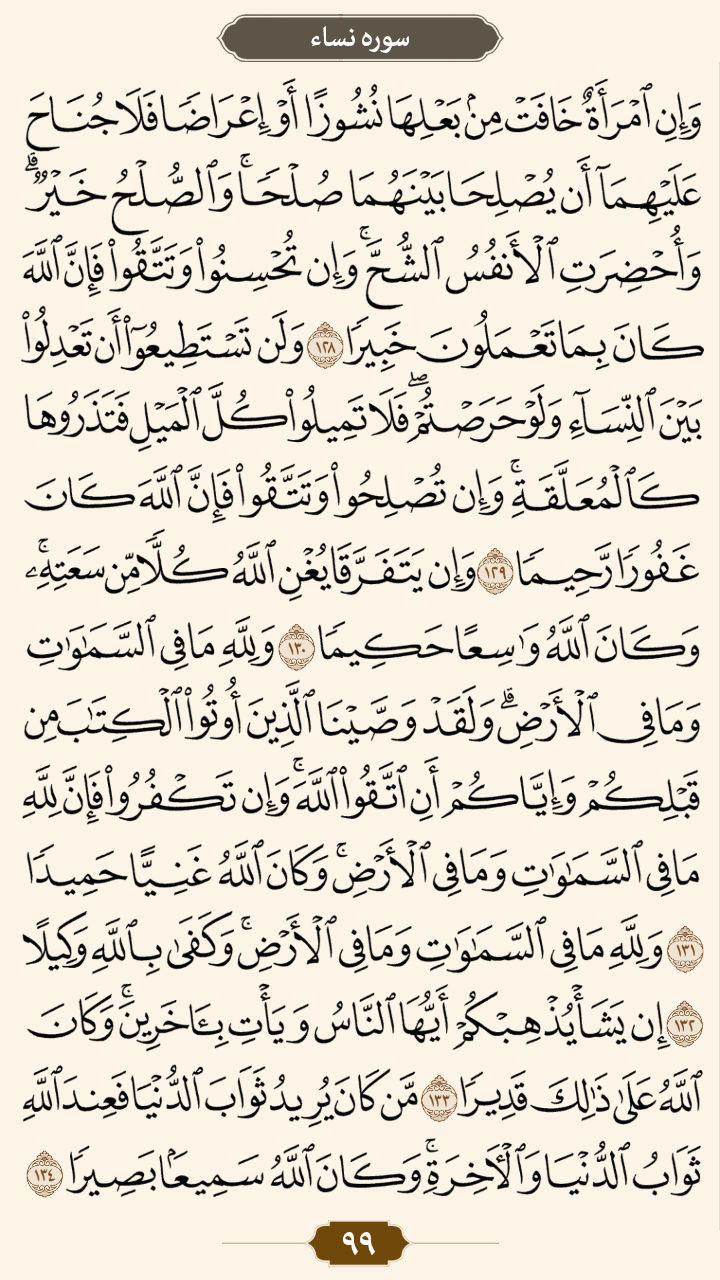 سوره نساء
وَإِنِ ٱمْرَأَةٌ خَافَتْ مِنۢ بَعْلِهَا نُشُوزًا أَوْ إِعْرَاضًا فَلَا جُنَاحَ
عَلَيْهِمَآ أَن يُصْلِحَا بَيْنَهُمَا صُلْحًا ۚ وَٱلصُّلْحُ خَيْرٌ ۗ
وَأُحْضِرَتِ ٱلْأَنفُسُ ٱلشُّحَّ ۚ وَإِن تُحْسِنُوا۟ وَتَتَّقُوا۟ فَإِنَّ ٱللَّهَ
كَانَ بِمَا تَعْمَلُونَ خَبِيرًا ١٢٨ وَلَن تَسْتَطِيعُوٓا۟ أَن تَعْدِلُوا۟
بَيْنَ ٱلنِّسَآءِ وَلَوْ حَرَصْتُمْ ۖ فَلَا تَمِيلُوا۟ كُلَّ ٱلْمَيْلِ فَتَذَرُوهَا
كَٱلْمُعَلَّقَةِ ۚ وَإِن تُصْلِحُوا۟ وَتَتَّقُوا۟ فَإِنَّ ٱللَّهَ كَانَ
غَفُورًا رَّحِيمًا ١٢٩ وَإِن يَتَفَرَّقَا يُغْنِ ٱللَّهُ كُلًّا مِّن سَعَتِهِۦ ۚ
وَكَانَ ٱللَّهُ وَٰسِعًا حَكِيمًا ١٣٠ وَلِلَّهِ مَا فِى ٱلسَّمَٰوَٰتِ
وَمَا فِى ٱلْأَرْضِ ۗ وَلَقَدْ وَصَّيْنَا ٱلَّذِينَ أُوتُوا۟ ٱلْكِتَٰبَ مِن
قَبْلِكُمْ وَإِيَّاكُمْ أَنِ ٱتَّقُوا۟ ٱللَّهَ ۚ وَإِن تَكْفُرُوا۟ فَإِنَّ لِلَّهِ
مَا فِى ٱلسَّمَٰوَٰتِ وَمَا فِى ٱلْأَرْضِ ۚ وَكَانَ ٱللَّهُ غَنِيًّا حَمِيدًا
١٣١ وَلِلَّهِ مَا فِى ٱلسَّمَٰوَٰتِ وَمَا فِى ٱلْأَرْضِ ۚ وَكَفَىٰ بِٱللَّهِ وَكِيلًا
١٣٢ إِن يَشَأْ يُذْهِبْكُمْ أَيُّهَا ٱلنَّاسُ وَيَأْتِ بِـَٔاخَرِينَ ۚ وَكَانَ
ٱللَّهُ عَلَىٰ ذَٰلِكَ قَدِيرًا ١٣٣ مَّن كَانَ يُرِيدُ ثَوَابَ ٱلدُّنْيَا فَعِندَ ٱللَّهِ
ثَوَابُ ٱلدُّنْيَا وَٱلْـَٔاخِرَةِ ۚ وَكَانَ ٱللَّهُ سَمِيعًۢا بَصِيرًا ١٣٤
٩٩